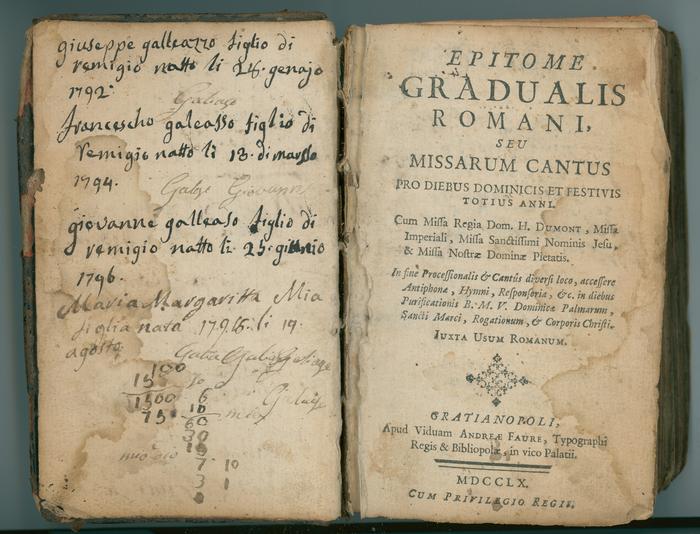 giuseppe galleazzo figlio di
remigio natto li 24 genajo
1792
francescho galeasso figlio di
remigio natto li 13 di marsso
1794.
Giovann
giovanne galleaso figlio di
remigio natto li 25
1796.
Maria Margaritta Mia
figlia nata li 19
agosto
100
15
1500
6
75
10
60
30
7 10
3 1
EPITOME
GRADUALIS
ROMANI,
SEU
MISSARUM CANTUS
PRO DIEBUS DOMINICIS ET FESTIVIS
TOTIUS ANNI.
Cum Missa Regia Dom. H. DUMONT, Missa
Imperiali, Missa Sanctissimi Nominis Jesu,
& Missa Nostræ Dominæ Pietatis.
In fine Processionalis & Cantûs diversi loco, accessere
Antiphonæ, Hymni, Responsoria, &c. in diebus
Purificationis B. M. V. Dominicæ Palmarum,
Sancti Marci, Rogationum, & Corporis Christi.
IUXTA USUM ROMANUM.
GRATIANOPOLI,
Apud Viduam ANDREÆ FAURE, Typographi
Regis & Bibliopolæ, in vico Palatii.
MDCCLX.
CUM PRIVILEGIO REGIS.